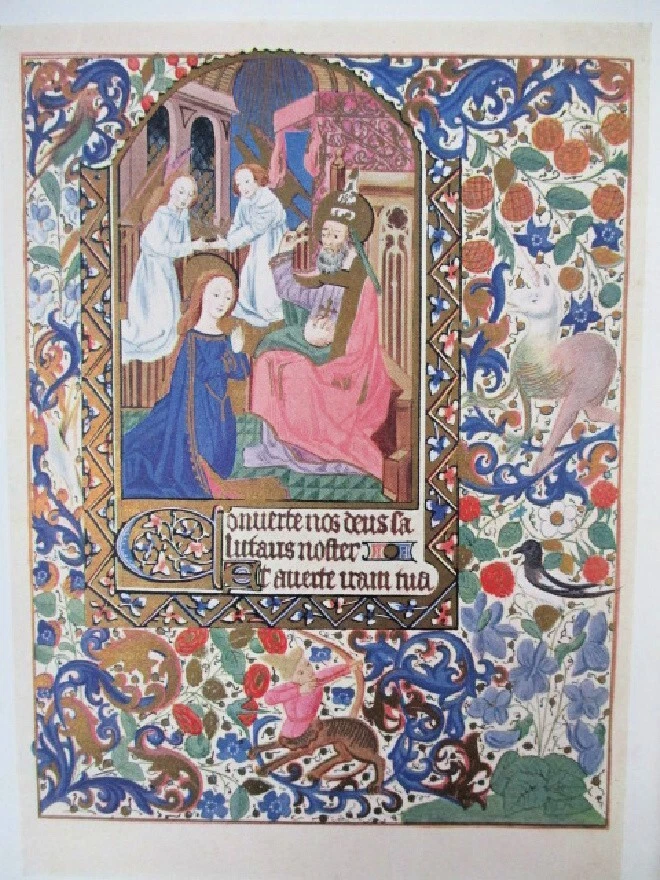 Conuerte nos deus sa
lutaris noster
Et auerte iram tuā